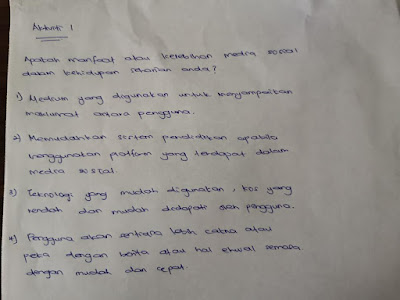 Aktiviti 1
Apakah manfaat atau kelebihan media sosial
dalam kehidupan seharian anda?
1) Medium yang digunakan untuk menyampaikan
maklumat antara pengguna.
2) Memudahkan sistem pendidikan apabila
menggunakan platform yang terdapat dalam
media sosial.
3) Teknologi yang mudah digunakan, kos yang
rendah dan mudah didapati oleh pengguna.
4) Pengguna akan sentiasa lebih cakna atau
peka dengan berita atau hal ehwal semasa
dengan mudah dan cepat.